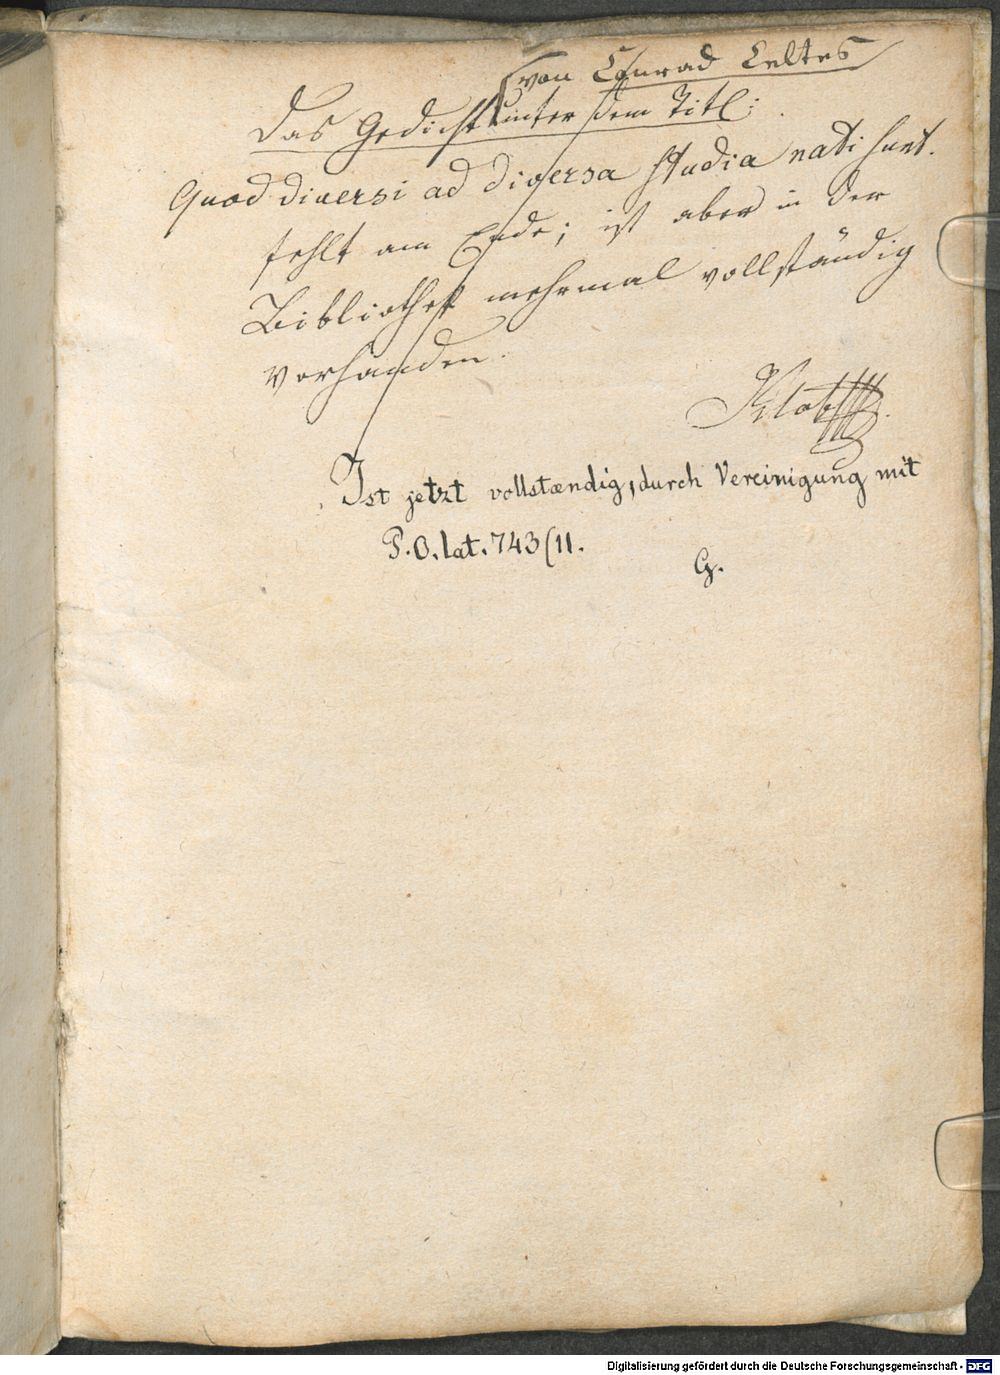 von Conrad Celtes
Das Gedicht unter dem Titl:
Quod diversi ad diversa studia nati sunt.
fehlt am Ende; ist aber in der
Bibliothek mehrmal vollständig
vorhanden.
Ist jetzt vollstændig, durch Vereinigung mit
P.O.lat.743(11.
G.
Digitalisierung gefördert durch die Deutsche Forschungsgemeinschaft - DFG